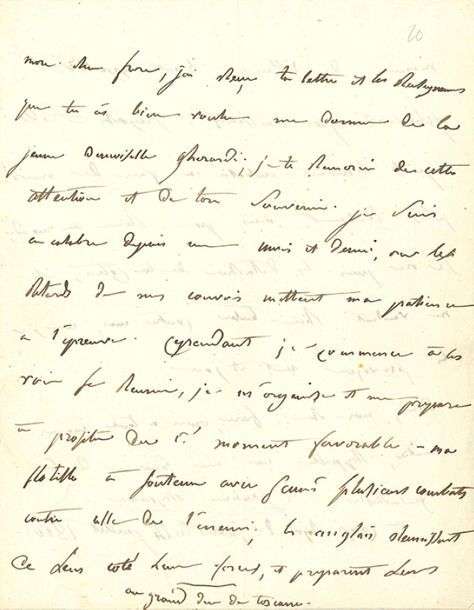 20
mon cher frere, j'ai recu ta lettre et les
que tu as bien voulu me donner de la
jeune Demoiselle gherardi; je te remercie de cette
attention et de ton souvenir. je suis
en calabre depuis un mois et demi, où les
Retards de mes convois mettent ma patience
a l'épreuve. Cependant je commence à les
voir se Reunir, je m'organise et me prepare
à profiter du 1er moment favorable - ma
flotille à soutenu avec plusieurs combats
contre celle de l'ennemi, les anglais
de leur coté leurs forces, et preparent leurs
au grand duc de toscane.